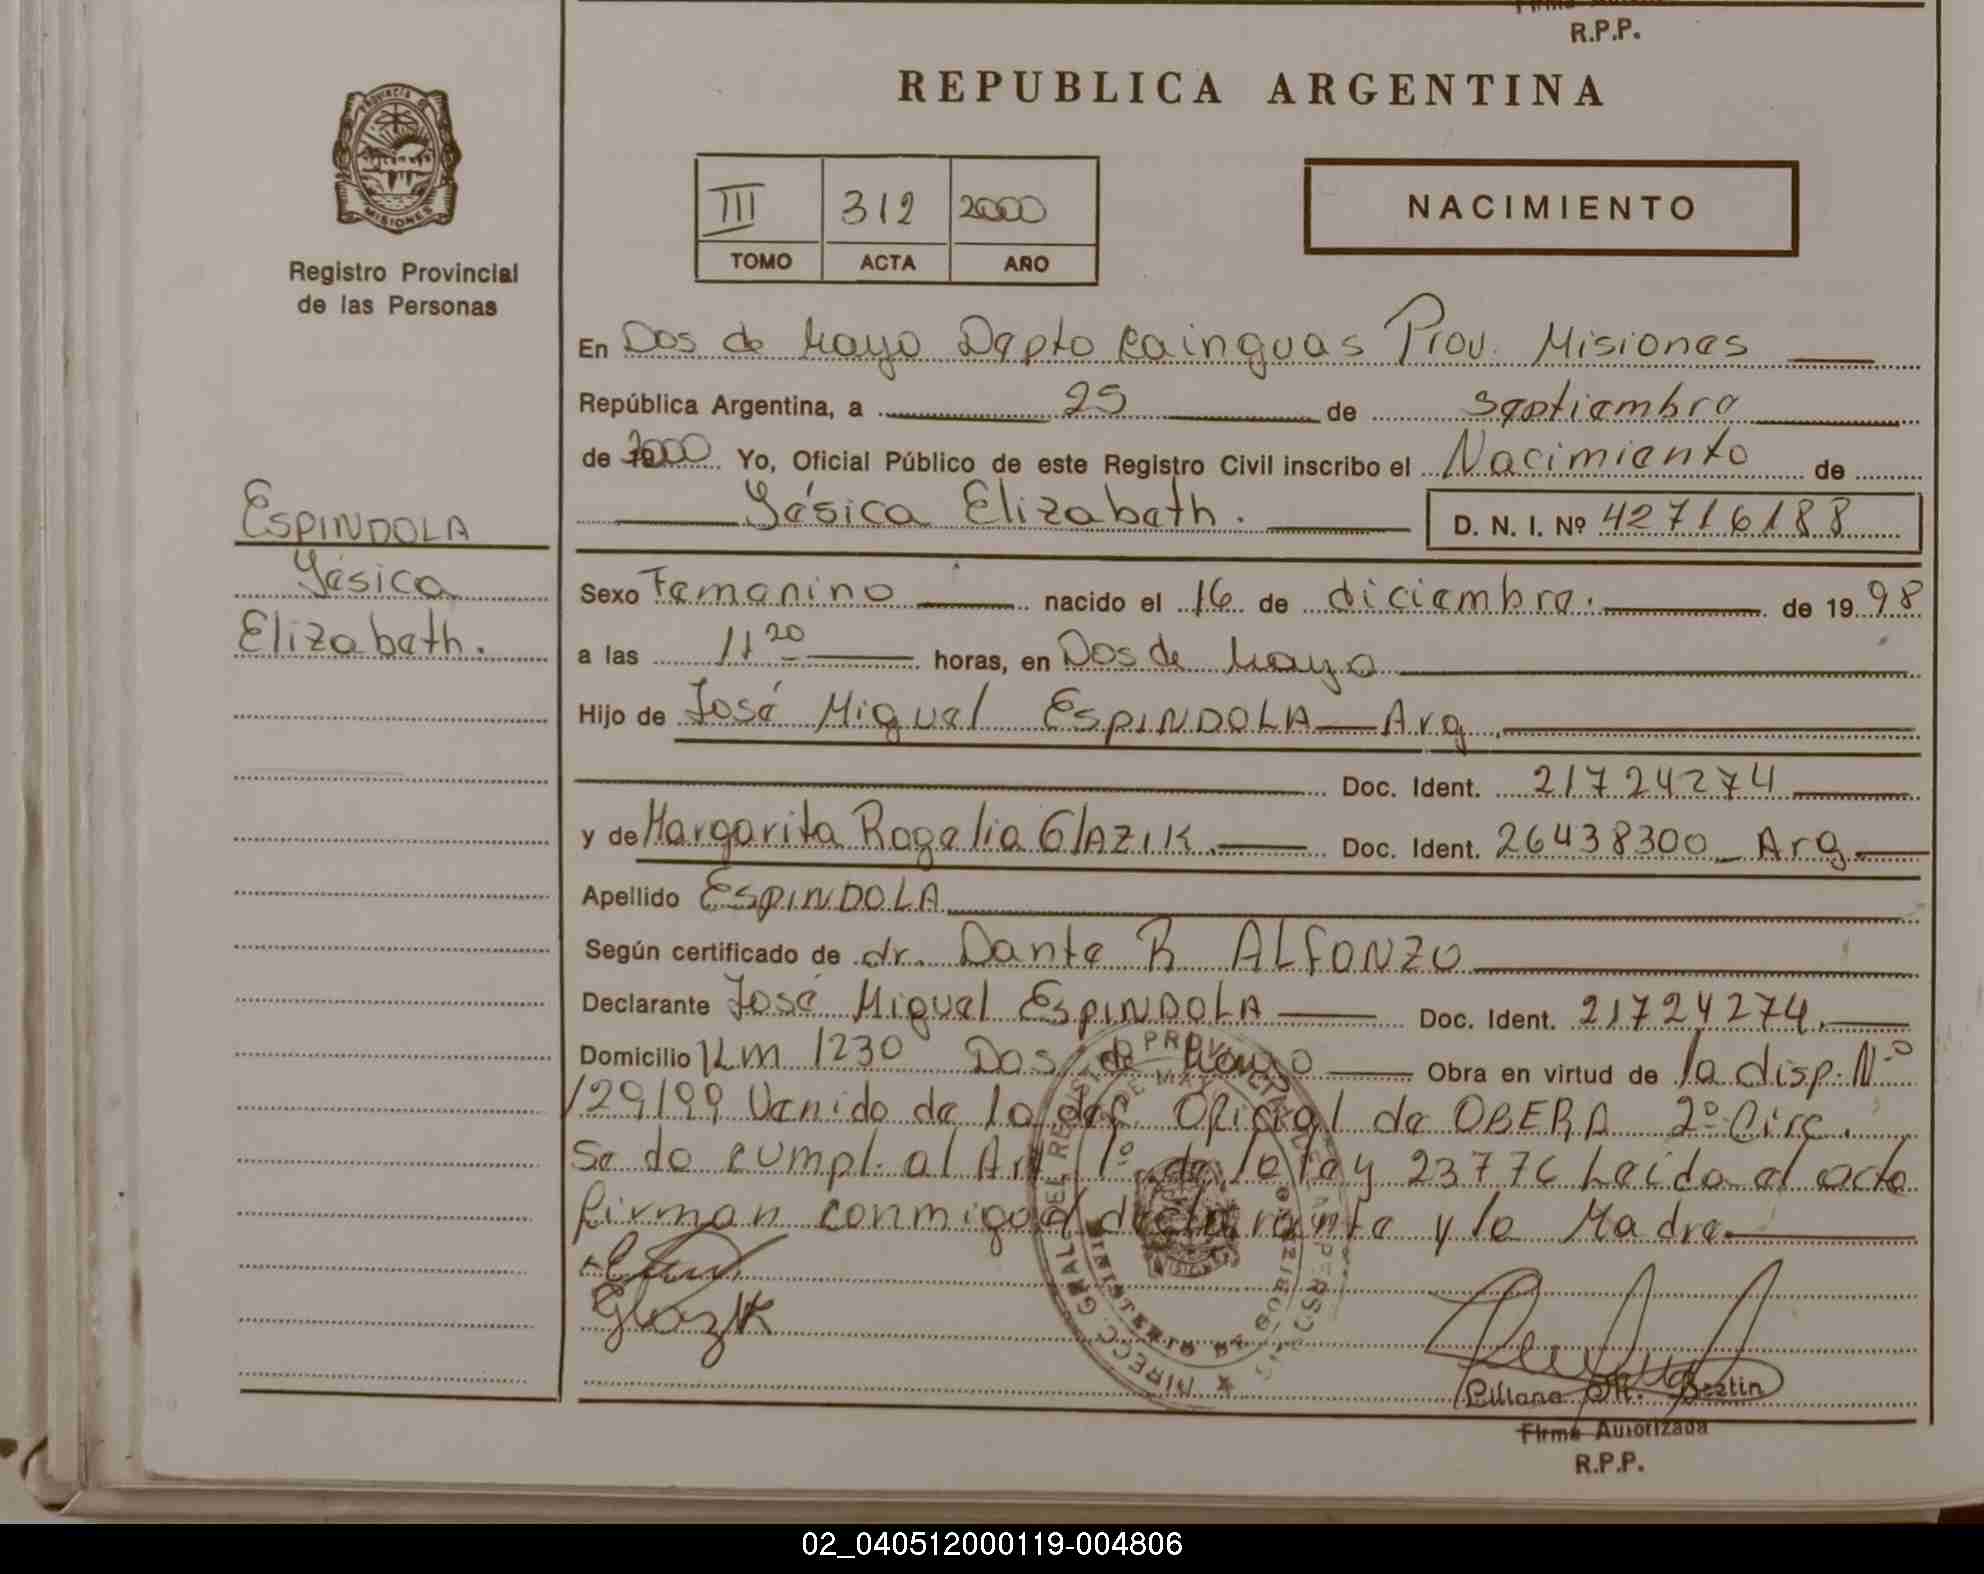 R.P.P.
REPUBLICA ARGENTINA
PROVINCIA DE
MISIONES
Registro Provincial
de las Personas
III 312 2000
TOMO ACTA AÑO
NACIMIENTO
En Dos de Mayo Depto Cainguas Prov. Misiones
República Argentina, a 25 de septiembre
de 2000 Yo, Oficial Público de este Registro Civil inscribo el Nacimiento de
Yésica Elizabeth. D. N. I. Nº 42716188
ESPINDOLA
Yésica
Elizabeth.
Sexo Femenino nacido el 16 de diciembre. de 1998
a las 11 20 horas, en Dos de Mayo
Hijo de José Miguel ESPINDOLA Arg.
Doc. Ident. 21724274
y de Margarita Rogelia GlAZIK. Doc. Ident. 26438300 Arg.
Apellido ESPINDOLA
Según certificado de dr. Dante R ALFONZO
Declarante José Miguel ESPINDOLA Doc. Ident. 21724274.
Domicilio KLM 1230 Dos de Mayo Obra en virtud de la disp. Nº
129/99 Venido de la def. Oficial de OBERA 2º Circ.
Se do cumpl. al Art. 1º de la ley 23776 Leída el acta
firman conmigo el declarante y la Madre.
Glazik
Firma Autorizada
R.P.P.
02_040512000119-004806